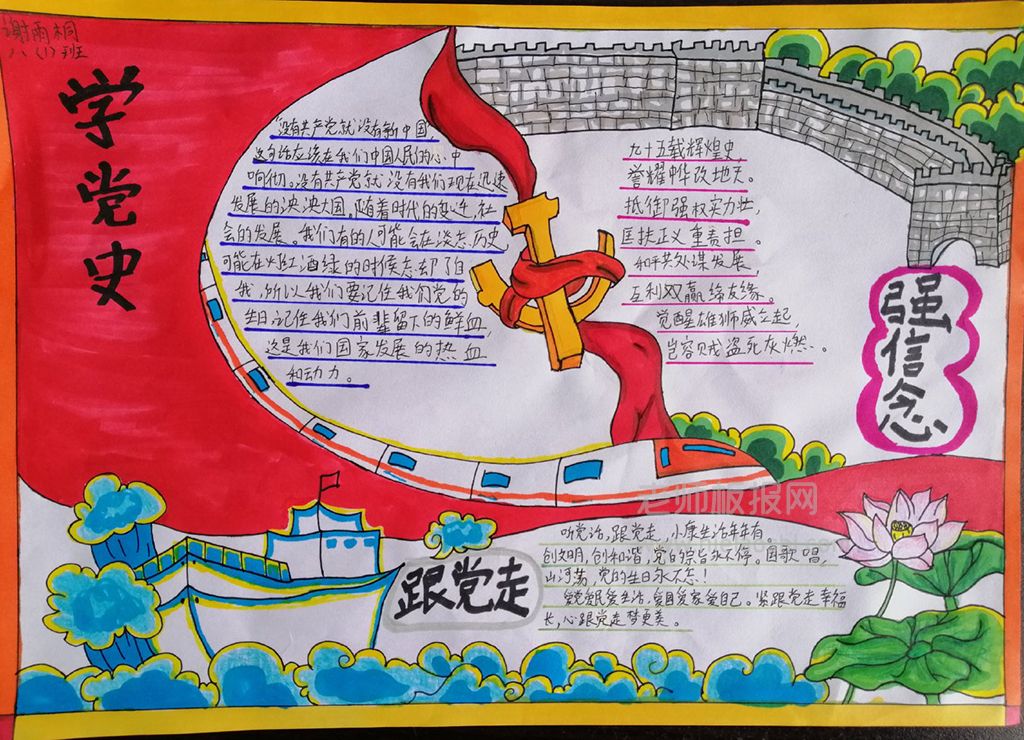 谢雨桐
八(1)班
学党史
"没有共产党就没有新中国"
这句话应该在我们中国人民的心中
响彻。没有共产党就没有我们现在迅速
发展的泱泱大国。随着时代的变迁,社
会的发展。我们有的人可能会在淡忘历史
可能在灯红酒绿的时候忘却了自
我,所以我们要记住我们党的
生日,记住我们前辈留下的鲜血,
这是我们国家发展的热血
和动力。
九十五载辉煌史,
誉耀中华改地天。
抵御强权实力壮,
匡扶正义重责担。
和平共处谋发展,
互利双赢缔友缘。
觉醒雄狮威立起,
岂容贼盗死灰燃。
强信念
老师板报网
跟党走
听党话,跟党走,小康生活年年有。
创文明,创和谐,党的宗旨永不停。国歌唱,
山河荡,党的生日永不忘!
爱党爱民爱生活,爱国爱家爱自己。紧跟党走幸福
长,心跟党走梦更美。